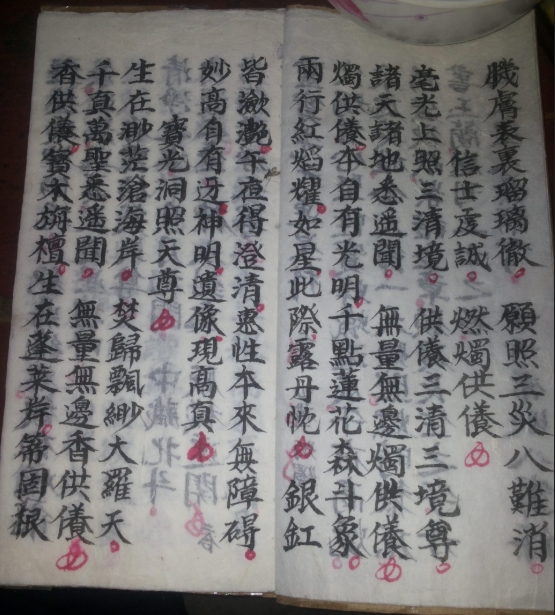 膚表裏瑠璃徹 願照三災八難消
信士虔誠 燃燭供儀
毫光上照三清境 供儀三清三境尊
諸天諸地悉遥聞 無量無邊燭供儀
燭供儀本自有光明千點蓮花森斗象
兩行紅焰耀如星此際露丹忱 銀缸
皆瀲灔午夜得澄清惠性本來無障碍
妙高自有迓神明遺像現高真
寶光洞照天尊
生在渺茫滄海岸 焚歸飄緲大羅天
千真萬聖悉遥聞 無量無邊香供儀
香供儀寳木栴檀生在蓬萊岸 固根